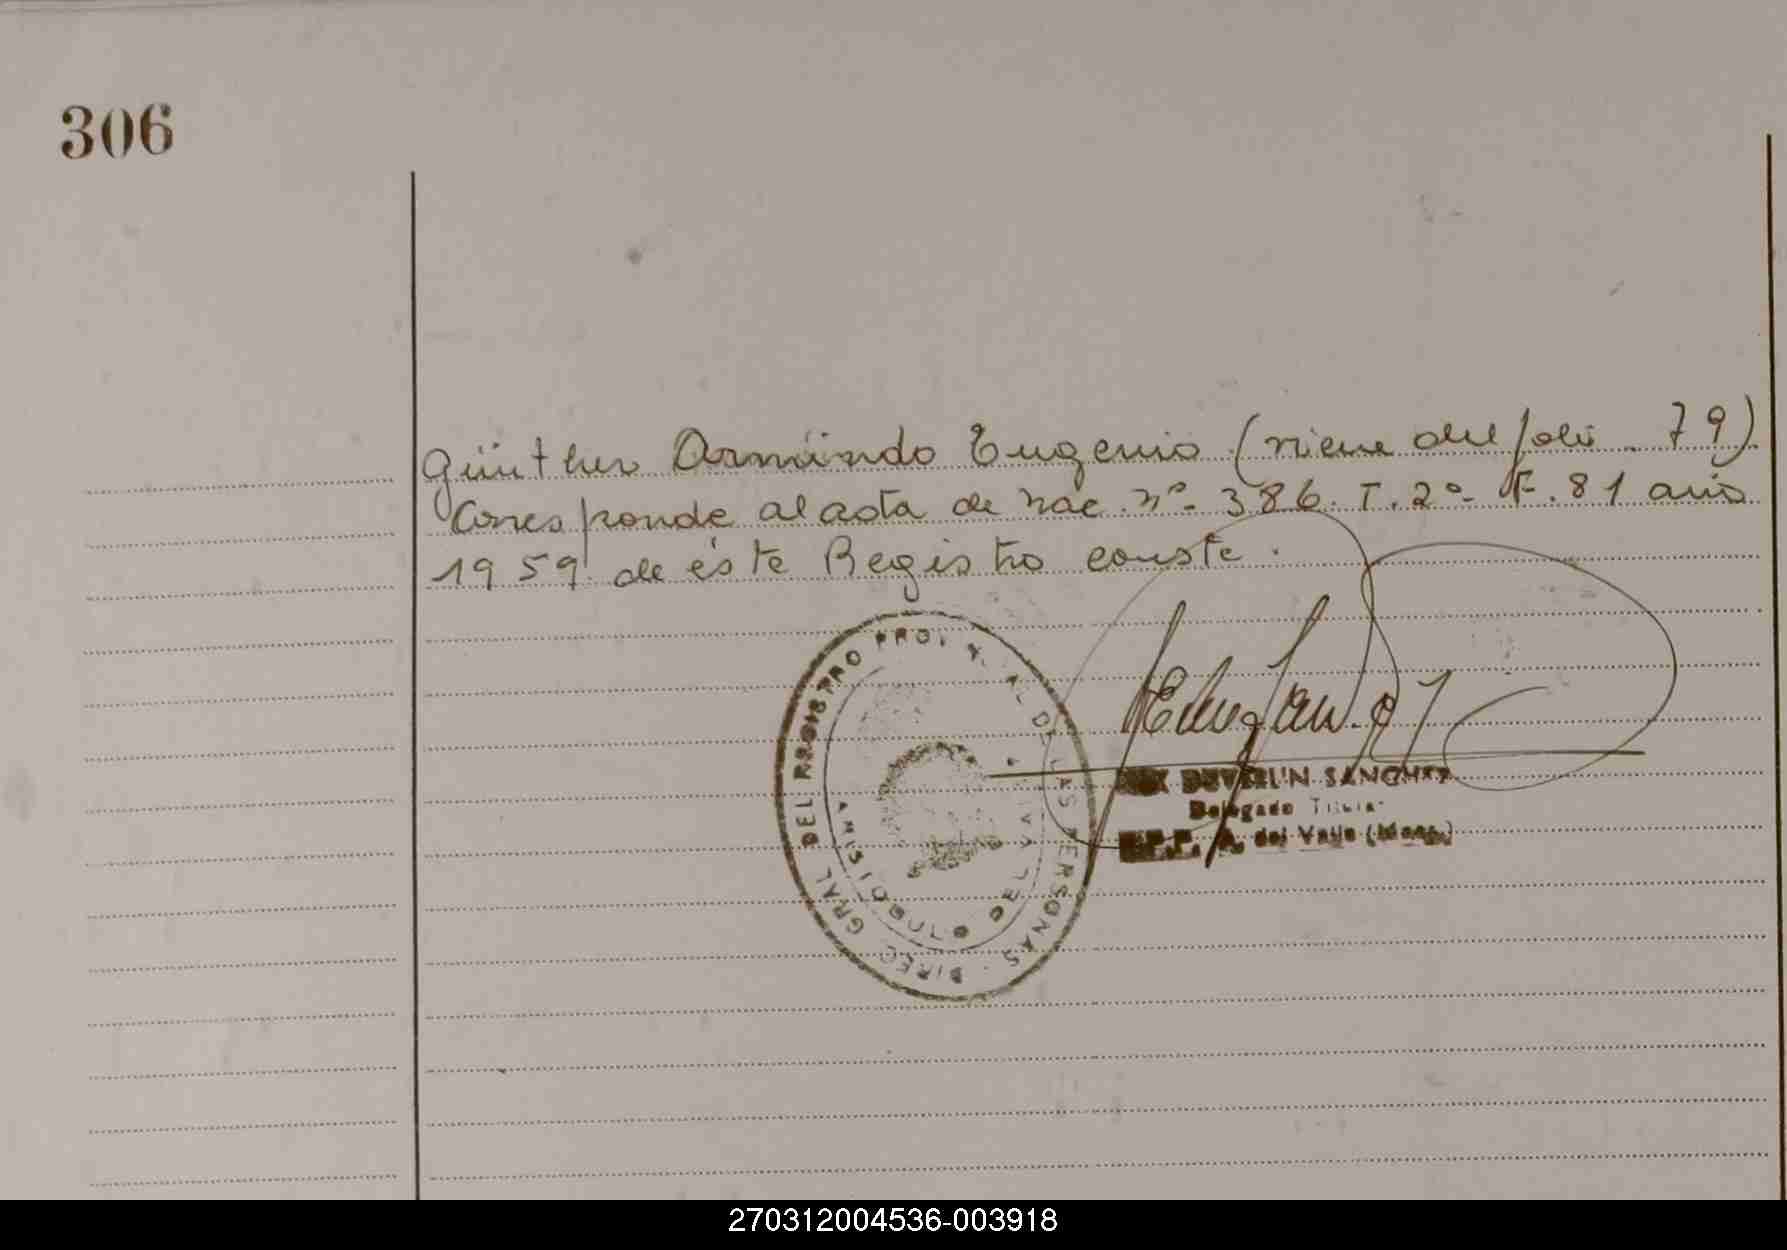 306
Günther Armando Eugenio (viene del folio 79)
Corresponde al acta de nac. nº 386. T. 2º F. 81 año
1959 de éste Registro conste.
DIREC GRAL DEL REGISTRO PROV. DE LAS PERSONAS
DEL VALLE
DUVERLIN SANCHEZ
Delegado Titular
A. del Valle (Mons.)
270312004536-003918